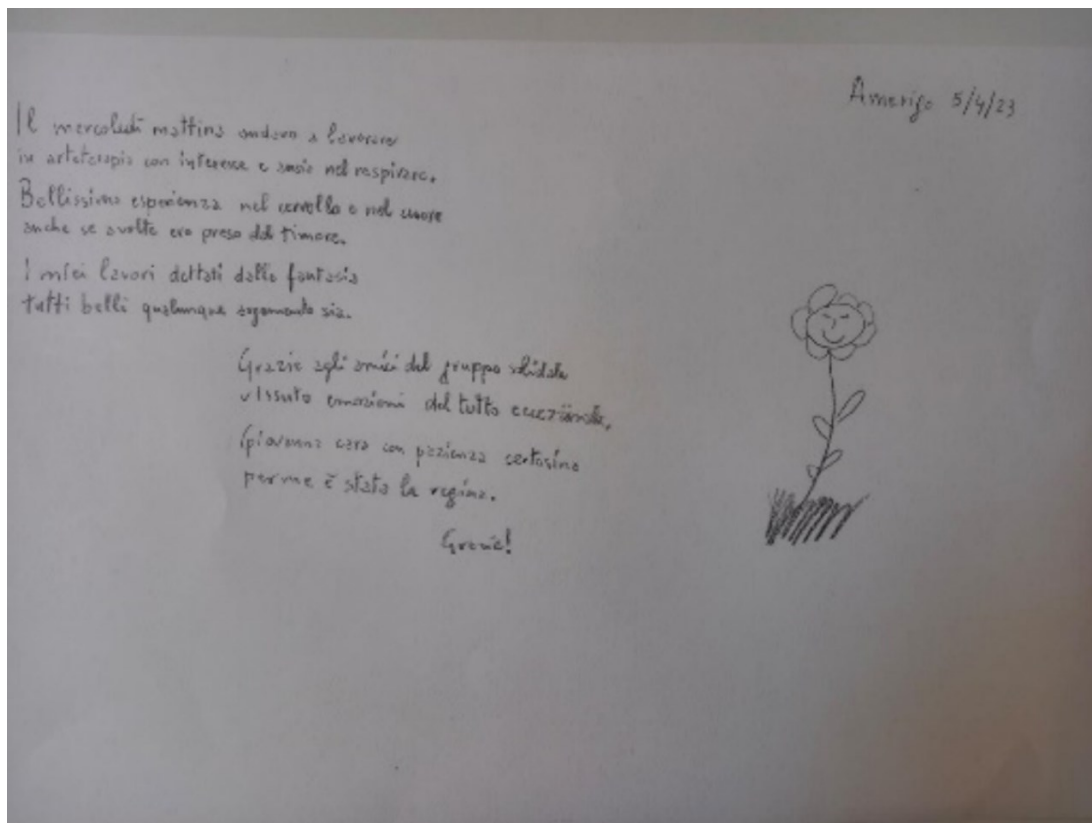 Amerigo 5/4/23
Il mercoledì mattina andavo a lavorare
in arteterapia con interesse e ansia nel respirare.
Bellissima esperienza nel cervello e nel cuore
anche se avolte ero preso dal timore.
I miei lavori dettati dalla fantasia
tutti belli qualunque argomento sia.
Grazie agli amici del gruppo solidale
vissuto emozioni del tutto eccezionale,
Giovanna cara con pazienza certosina
per me è stata la regina.
Grazie!